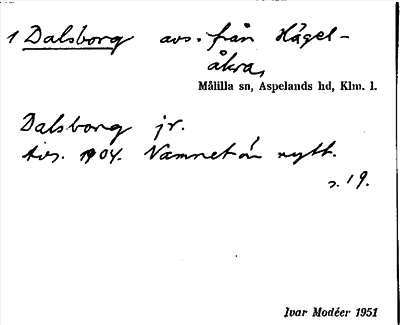 1 Dalsborg avs. från Hägel-
åkra,
Målilla sn, Aspelands hd, Klm. l.
Dalsborg jr.
Avs. 1904. Namnet än nytt.
s. 19.
Ivar Modéer 1951